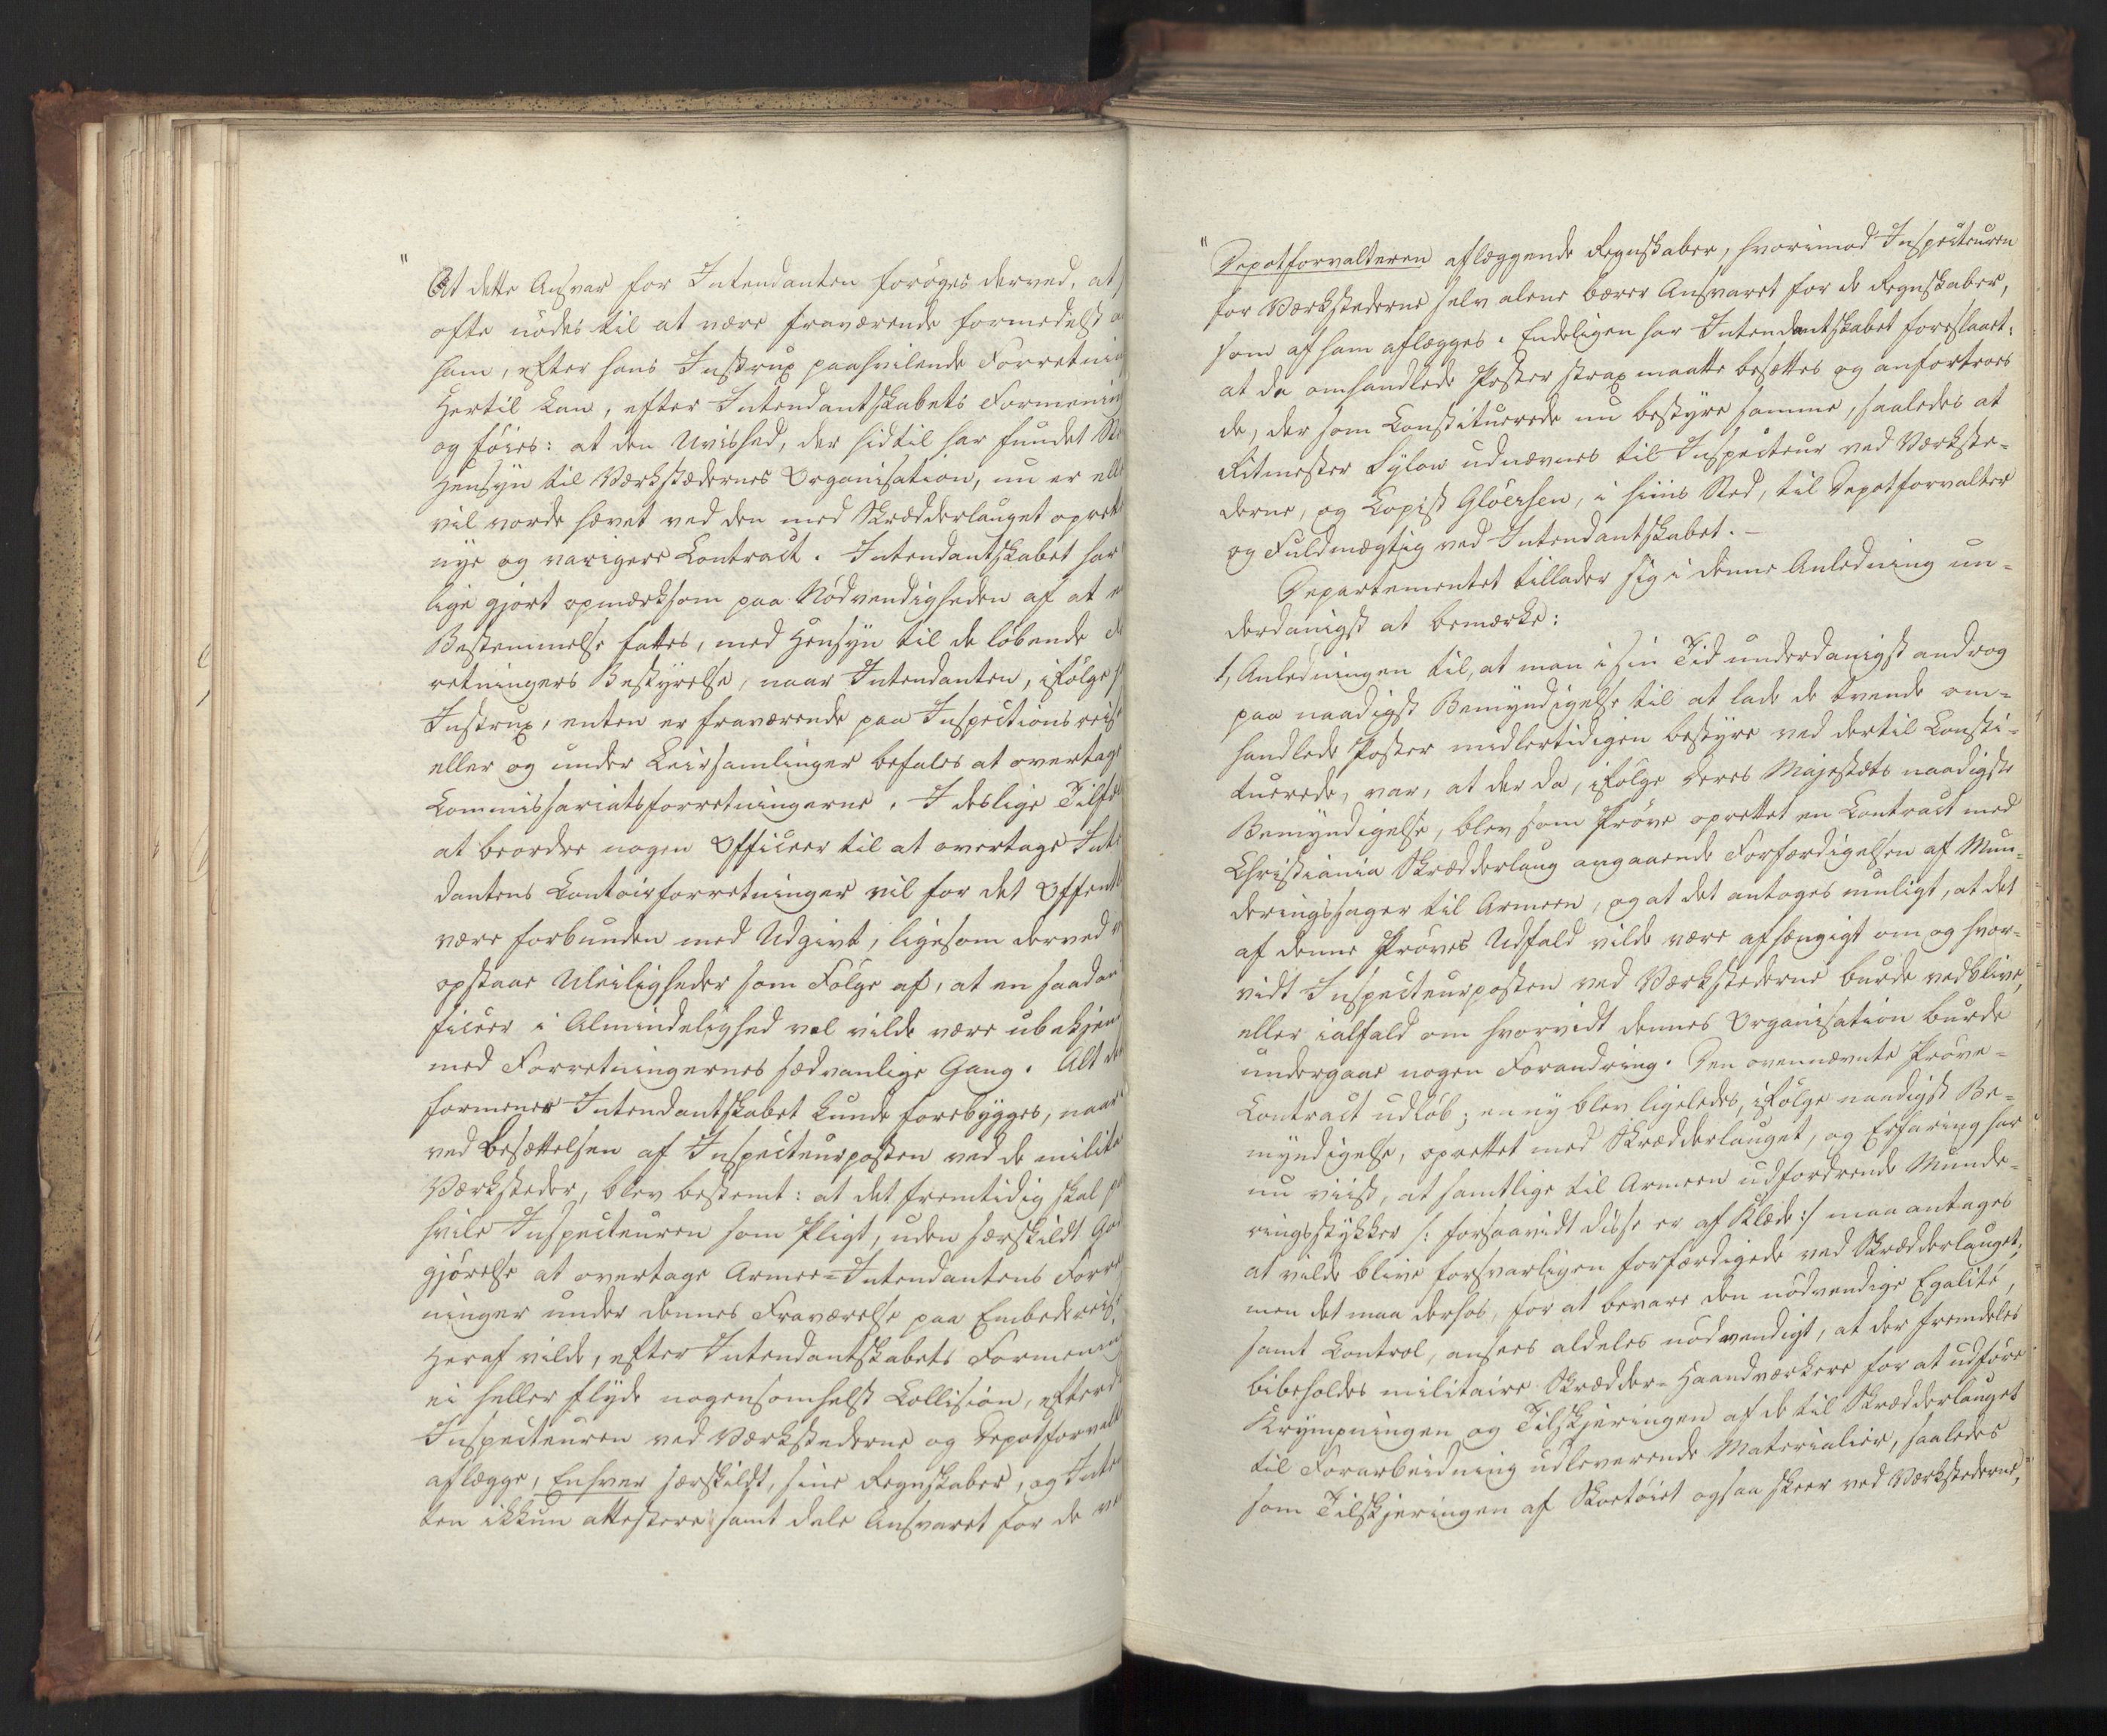 "At dette Ansvar for Intendanten forøges derved, at
ofte nødes til at være fraværende formedelst
ham, efter hans Instrux paahvilende Forretnin
Hertil kan, efter Intendantskabets Formening
og føies: at den Uvished, der hidtil har fundet St
Hensyn til Værkstædernes Organisation, nu er elle
vil vorde hævet ved den med Skrædderlauget oprett
nye og varigere Contract. Intendantskabet har
lige gjort opmærksom paa Nødvendigheden af at e
Bestemmelse fattes, med Hensyn til de løbende Fo
retningers Bestyrelse, naar Intendanten, ifølge s
Instrux, enten er fraværende paa Inspectionsreise
eller og under Leirsamlinger befales at overtage
Commissariatsforretningerne. I deslige Tilfæ
at beordre nogen Officeer til at overtage Inte
dantens Contoirforretninger vil for det Offentl
være forbunden med Udgivt, ligesom derved v
opstaae Uleiligheder som Følge af, at en saadan
ficeer i Almindelighed vel vilde være ubekjend
med Forretningernes sædvanlige Gang. Alt de
formener Intendantskabet kunde forebygges, naar
ved Besættelsen af Inspecteurposten ved de milita
Værksteder, blev bestemt: at det fremtidig skal pa
hvile Inspecteuren som Pligt, uden særskildt God
gjørelse at overtage Armee-Intendantens Forre
ninger under dennes Fraværelse paa Embedsreise
Heraf vilde, efter Intendantskabets Formening
ei heller flyde nogensomhelst Collision, efterd
Inspecteuren ved Værkstederne og Depotforvalte
aflægge, Enhver særskildt, sine Regnskaber, og Inten
ten ikkun attestere samt dele Ansvaret for de ve
"Depotforvalteren aflæggende Regnskaber, hvorimod Inspecteuren
for Værkstederne selv alene bærer Ansvaret for de Regnskaber,
som af ham aflægges. Endeligen har Intendantskabet foreslaaet:
at da omhandlede Poster strax maatte besættes og anfortroes
de, der som Constituerede nu bestyre samme, saaledes at
Ritmester Sylow udnævnes til Inspecteur ved Værkste-
derne, og Copist Gløersen, i hiins Sted, til Depotforvalter
og Fuldmægtig ved Intendantskabet. -
Departementet tillader sig i denne Anledning un-
derdanigst at bemærke:
1, Anledningen til, at man i sin Tid underdanigst androg
paa naadigst Bemyndigelse til at lade de tvende om-
handlede Poster midlertidigen bestyre ved dertil Consti-
tuerede, var, at der da, ifølge Deres Majestæts naadigste
Bemyndigelse, blev som Prøve oprettet en Contract med
Christiania Skrædderlaug angaaende Forfærdigelsen af Mun-
deringssager til Armeen, og at det antoges muligt, at det
af denne Prøves Udfald vilde være afhængigt om og hvor-
vidt Inspecteurposten ved Værkstederne burde vedblive,
eller ialfald om hvorvidt dennes Organisation burde
undergaae nogen Forandring. Den ovennævnte Prøve-
Contract udløb; en ny blev ligeledes, ifølge naadigst Be-
myndigelse, oprettet med Skrædderlauget, og Erfaring har
nu viist, at samtlige til Armeen udfordrende Munde-
ringsstykker /: forsaavidt disse er af Klæde :/ maa antages
at ville blive forsvarligen forfærdigede ved Skrædderlauget;
men det maa derhos, for at bevare den nødvendige Egalité,
samt Control, ansees aldeles nødvendigt, at der fremdeles
bibeholdes militaire Skrædder-Haandværkere for at udføre
Krympningen og Tilskjæringen af de til Skrædderlauget
til Forarbeidning udleverende Materialier, saaledes
som Tilskjæringen af Skoetøiet ogsaa skeer ved Værkstederne,